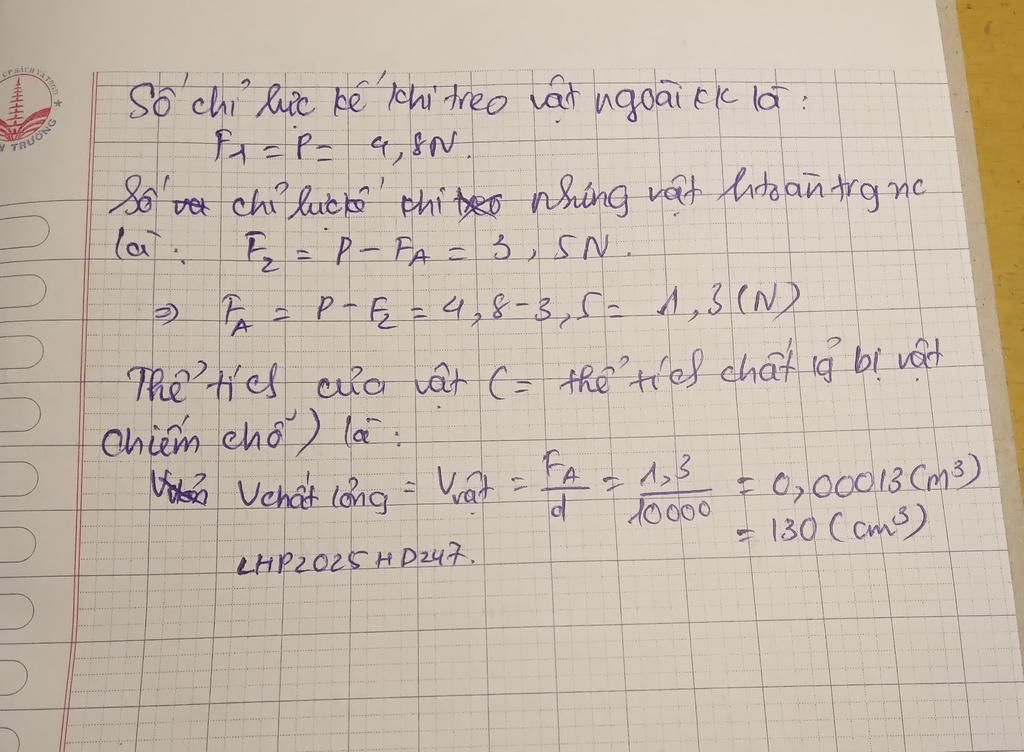 Số chỉ lực kế khi treo vật ngoài kk là:
F1 = P = 4,8N.
Số chỉ lực kế khi nhúng vật htoàn trg nc
là: F2 = P - FA = 3,5N.
⇒ FA = P - F2 = 4,8 - 3,5 = 1,3 (N)
Thể tích của vật (= thể tích chất lg bị vật
chiếm chỗ) là:
Vchất lỏng = Vvật = FA/d = 1,3/10000 = 0,00013 (m³)
= 130 (cm³)
LHP2025HD247.
TRƯỜNG